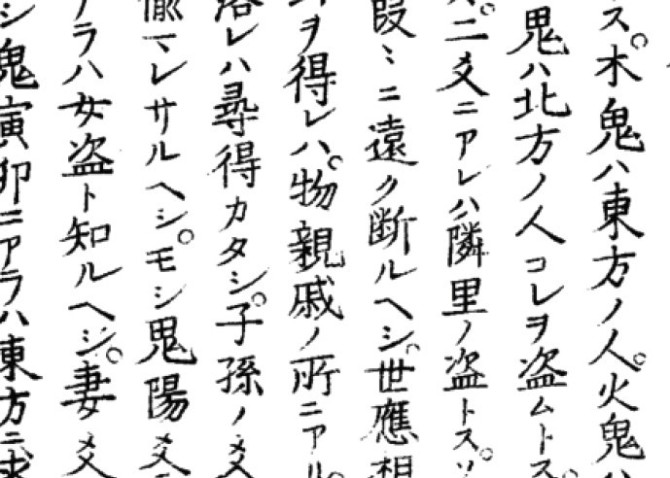 ス。木鬼ハ東方ノ人。火鬼ハ
鬼ハ北方ノ人コレヲ盗ムトス。
ス。二爻ニアレハ隣里ノ盗トス。ソ
叚ミニ遠ク断ルヘシ。世應相
ヲ得レハ。物親戚ノ所ニアリ。
落レハ尋得カタシ。子孫ノ爻
マレサルヘシ。モシ鬼陽爻ニ
アラハ女盗ト知ルヘシ。妻爻
シ鬼寅卯ニアラハ東方ニ求